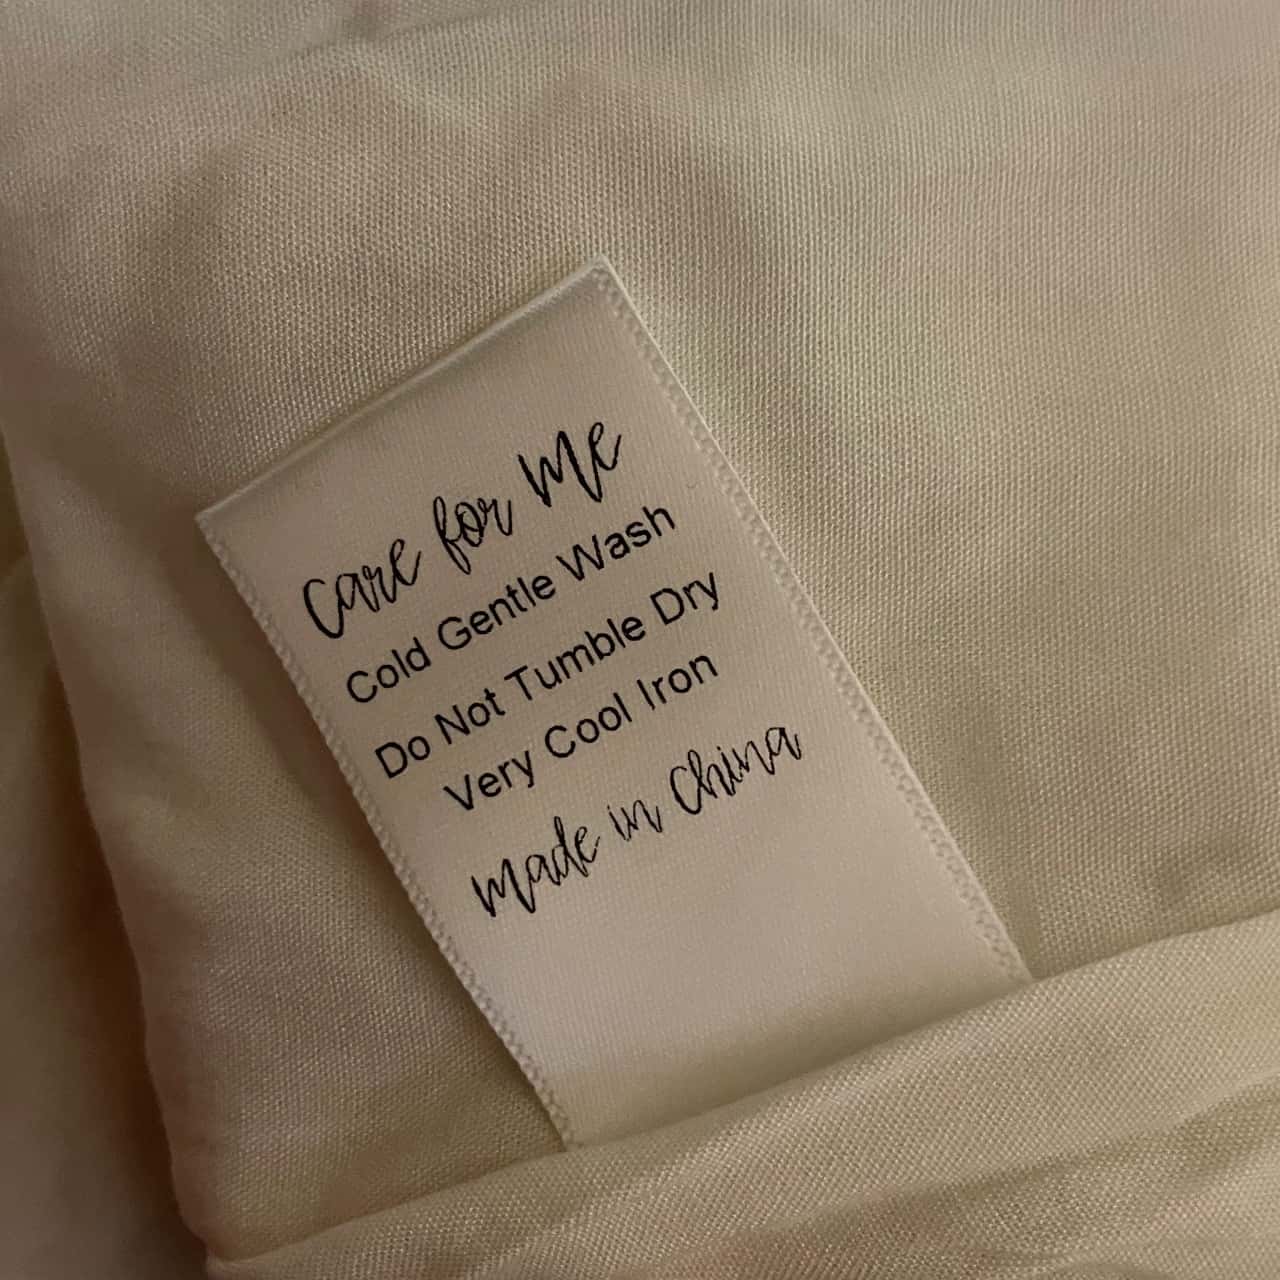 care for me
Cold Gentle Wash
Do Not Tumble Dry
Very Cool Iron
made in China